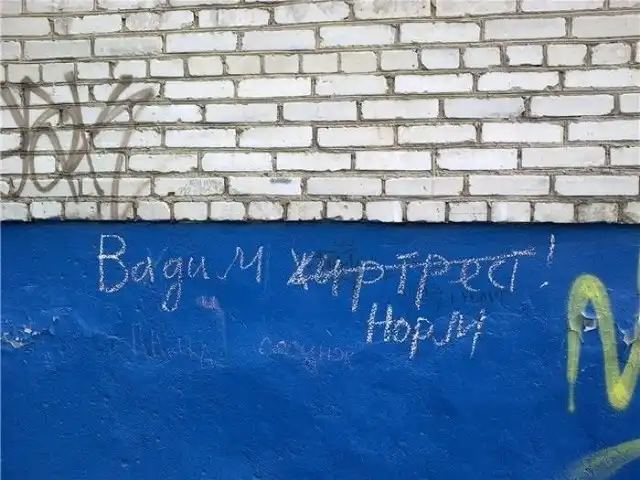 Вадим жиртрест!
Норм